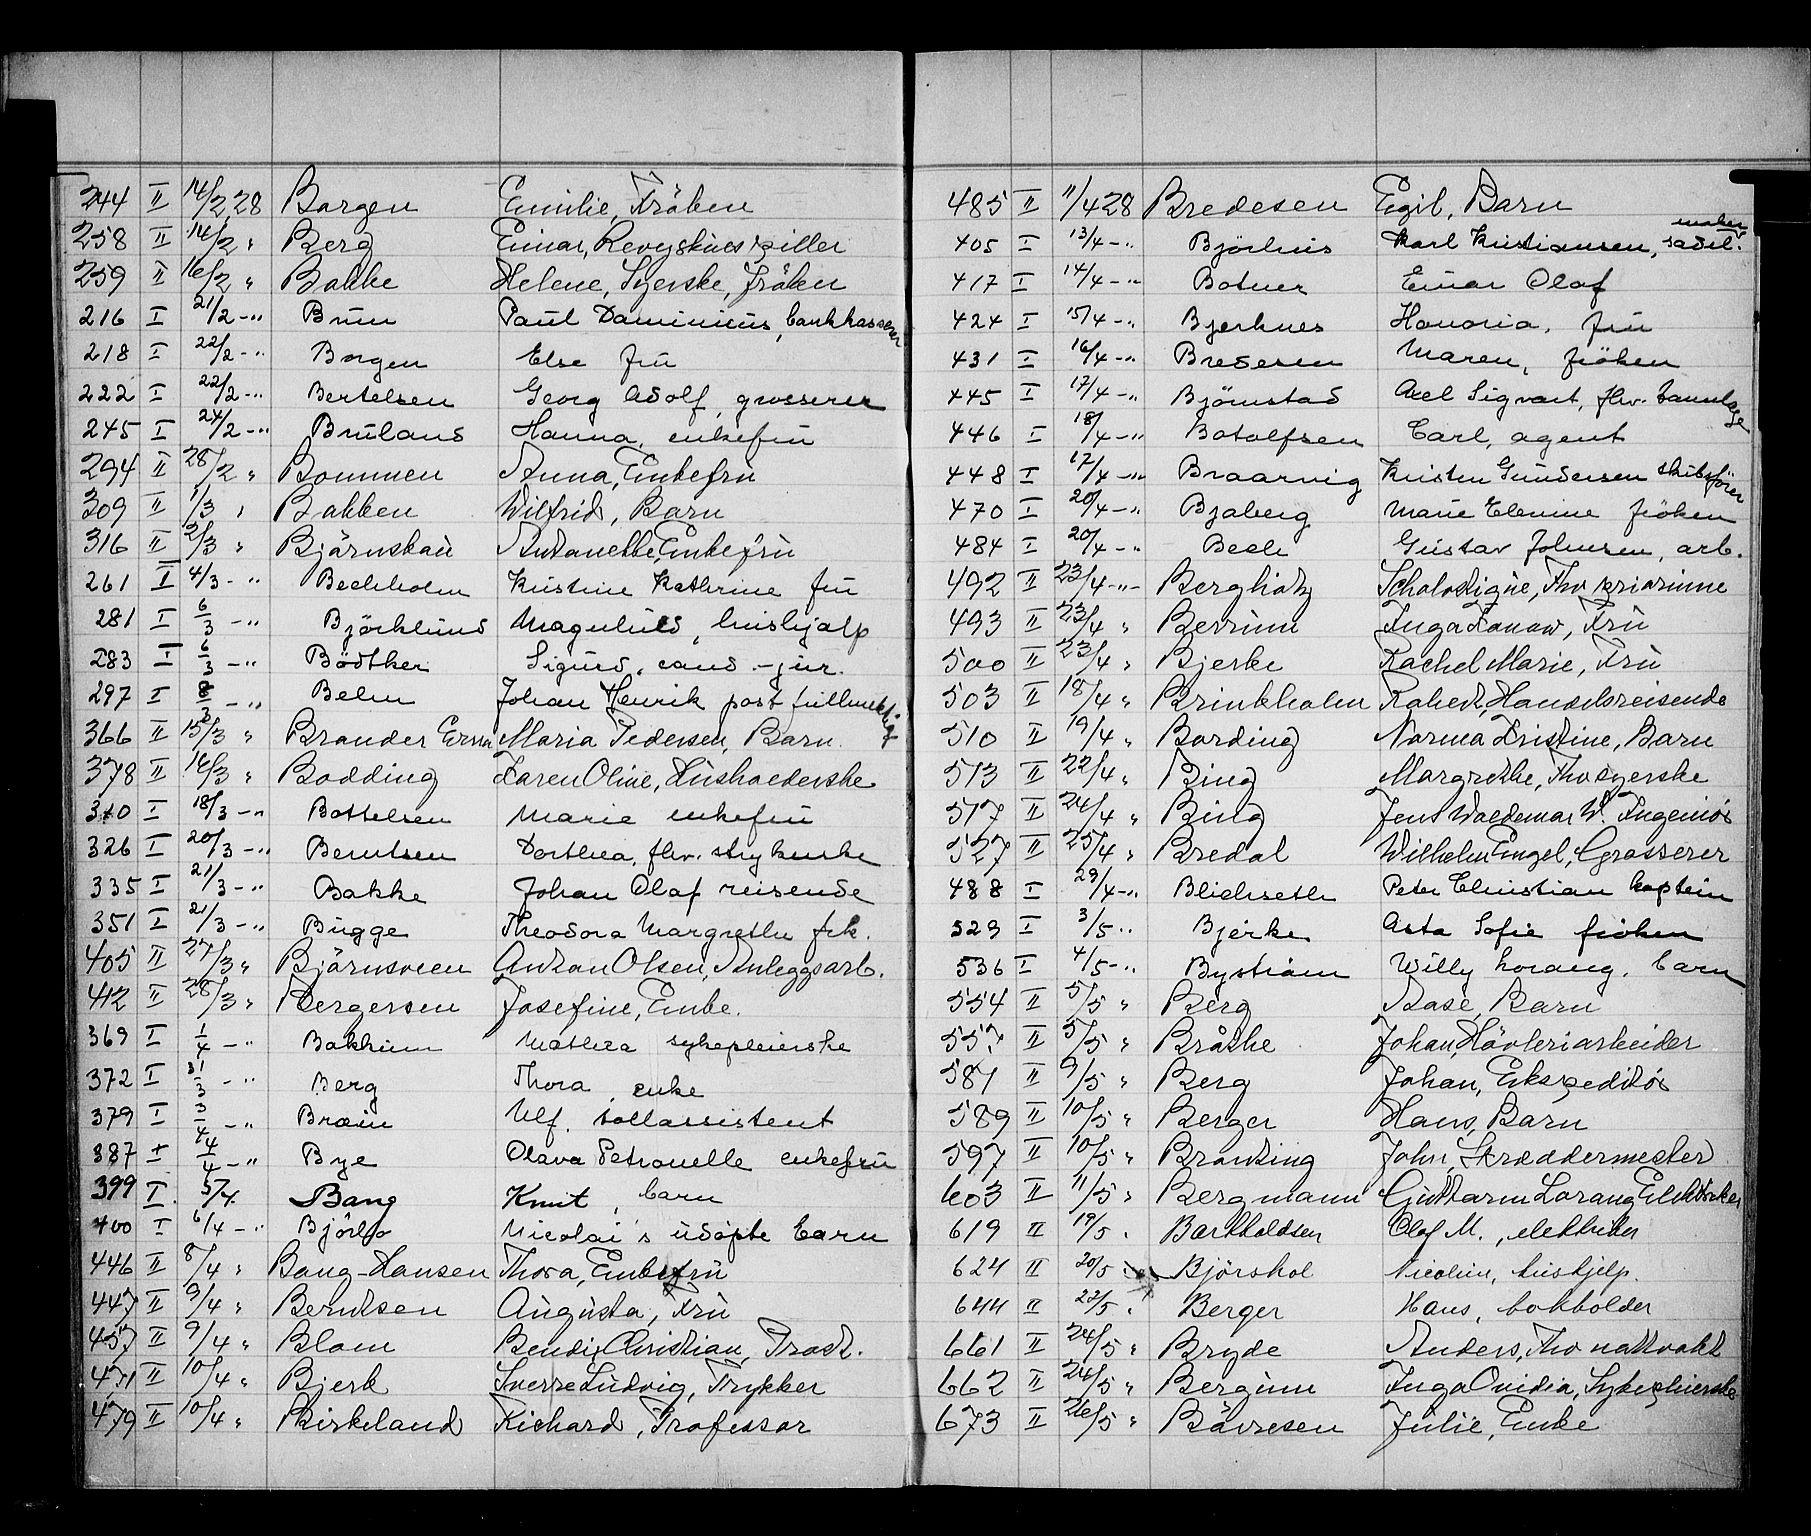 244 II 14/2 28 Borgen Emilie, Fröken
258 II 14/2 " Berg Einar, Revyskuespiller
259 II 16/2 " Bakke Helene, Syerske, fröken
216 I 21/2 -"- Brun Paul Dominicus, bankkasserer
218 I 22/2 -"- Borgen Else fru
222 I 22/2 -"- Bertelsen Georg Adolf, grosserer
245 I 24/2 -"- Bruland Hanna, enkefru
294 II 28/2 " Bommen Anna, Enkefru
309 II 1/3 " Bakken Wilfrid, Barn
316 II 2/3 " Björnskau Antonette, Enkefru
261 I 4/3 -"- Bechholm Kristine Kathrine fru
281 I 6/3 -"- Björklund Magnhild, hushjælp
283 I 6/3 -"- Bödtker Sigurd, cand. jur.
297 I 8/3 -"- Behn Johan Henrik post fullmektig
366 II 15/3 " Brander Erna Maria Pedersen, Barn.
378 II 16/3 " Bodding Karen Oline, Husholderske
310 I 18/3 -"- Bottelsen Marie enkefru
326 I 20/3 -"- Berntsen Dorthea, fhv. strykerske
335 I 21/3 -"- Bakke Johan Olaf reisende
351 I 21/3 -"- Bugge Theodora Margrethe frk.
405 II 27/3 " Björnsveen Anton Olsen, Anleggsarb.
412 II 28/3 " Bergersen Josefine, Enke.
369 I 1/4 -"- Bakkum Mathea sykepleierske
372 I 31/3 -"- Berg Thora enke
379 I 3/4 -"- Bræin Ulf. tollassistent
387 I 4/4 -"- Bye Olava Petronelle enkefru
399 I. 5/4. Bang Knut, barn
400 I 6/4 -"- Björlo Nicolai's udöpte barn
446 II 8/4 " Bang-Hansen Thora, Enkefru
447 II 9/4 " Berntsen Augusta, Fru
457 II 9/4 " Blom Bendix Christian, Prost.
471 II 10/4 " Bjerk Sverre Ludvig, Trykker
479 II 10/4 " Birkeland Richard, Professor
485 II 11/4 28 Bredesen Egil, Barn
405 I 13/4 -"- Björhus Karl Kristiansen, sadel. maker
417 I 14/4 -"- Botner Einar Olaf
424 I 15/4 -"- Bjerknes Honoria, fru
431 I 16/4 -"- Bredesen Maren, fröken
445 I 17/4 -"- Björnstad Axel Sigvart, fhv. tannlæge
446 I 18/4 -"- Botolfsen Carl, agent
448 I 17/4 -"- Braarvig Kristen Gundersen skibsförer
470 I 20/4 -"- Bjaberg Marie Elenine fröken
484 I 20/4 -"- Bech Gustav Johnsen, arb.
492 II 23/4 -"- Bergholtz Scholastique, Fhv priorinne
493 II 23/4 " Berrum Inga Kanow, Fru
500 II 23/4 " Bjerke Rachel Marie, Fru
503 II 18/4 " Brinkholm Robert, Handelsreisende
510 II 19/4 " Bording Norma Kristine, Barn
513 II 22/4 " Bing Margrethe, Fhv syerske
517 II 24/4 " Bing Jens Waldemar W. Ingeniör
527 II 25/4 " Bredal Wilhelm Engel, Grosserer
488 I 29/4 -"- Blichseth Peter Christian kaptein
523 I 3/5 -"- Bjerke Asta Sofie fröken
536 I 4/5 -"- Byström Willy Lorang, barn
554 II 5/5 " Berg Aase, Barn
557 II 5/5 " Bråthe Johan, Hövleriarbeider
581 II 9/5 " Berg Johan, Ekspeditör
589 II 10/5 " Berger Hans, Barn
597 II 10/5 " Bronking John, Skræddermester
603 II 11/5 " Bergmann Guttorm Lorang Elektriker
619 II 19/5 " Bartholdsen Olaf M., elektriker
624 II 20/5 " Björshol Nicoline, hushjelp.
644 II 22/5 " Berger Hans, bokholder
661 II 24/5 " Bryde Anders, Fhv nattvakt
662 II 24/5 " Bergum Inga Ovidia, Sykepleierske
673 II 26/5 " Bövresen Julie, Enke